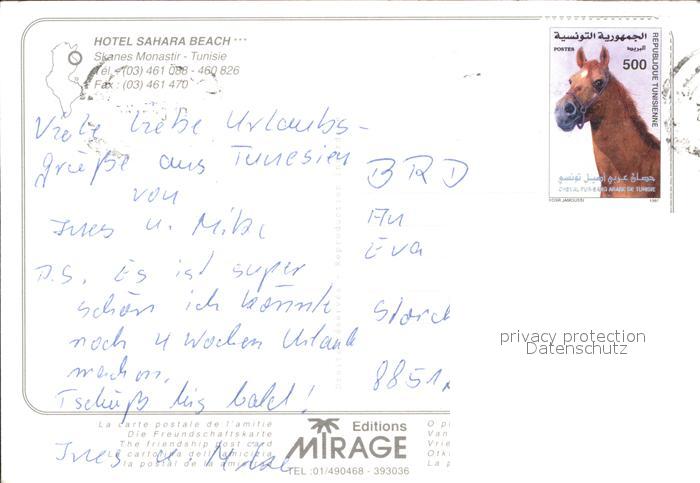 HOTEL SAHARA BEACH ***
Skanes Monastir - Tunisie
Tél. (03) 461 088 - 460 826
Fax : (03) 461 470
Viele liebe Urlaubs-
grüße aus Tunesien
von
Ines u. Mike
P.S. Es ist super
schön ich könnte
noch 4 Wochen Urlaub
machen.
Tschüß bis bald!
Ines u. Mike
BRD
An
Eva
Storch
8851
الجمهورية التونسية
POSTES البريد
500
REPUBLIQUE TUNISIENNE
حصان عربي أصيل تونسي
CHEVAL PUR-SANG ARABE DE TUNISIE
YOSR JAMOUSSI 1997
privacy protection
Datenschutz
La carte postale de l'amitié
Die Freundschaftskarte
The friendship post card
La cartolina dell'amicizia
la postal de la
Editions
MIRAGE
TEL :01/490468 - 393036
Van
Vrie